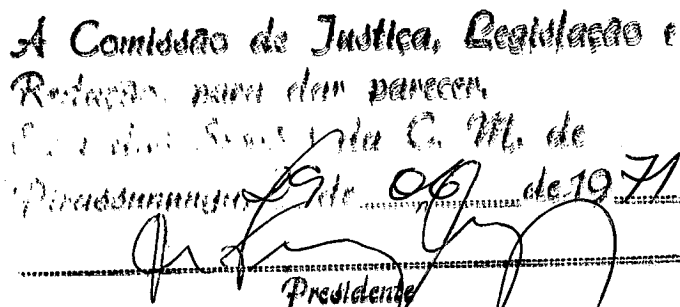 A Comissão de Justiça, Legislação e
Redação, para dar parecer.
Sala das Sessões da C. M. de
Pirassununga, 29 de 06 de 1971
Presidente